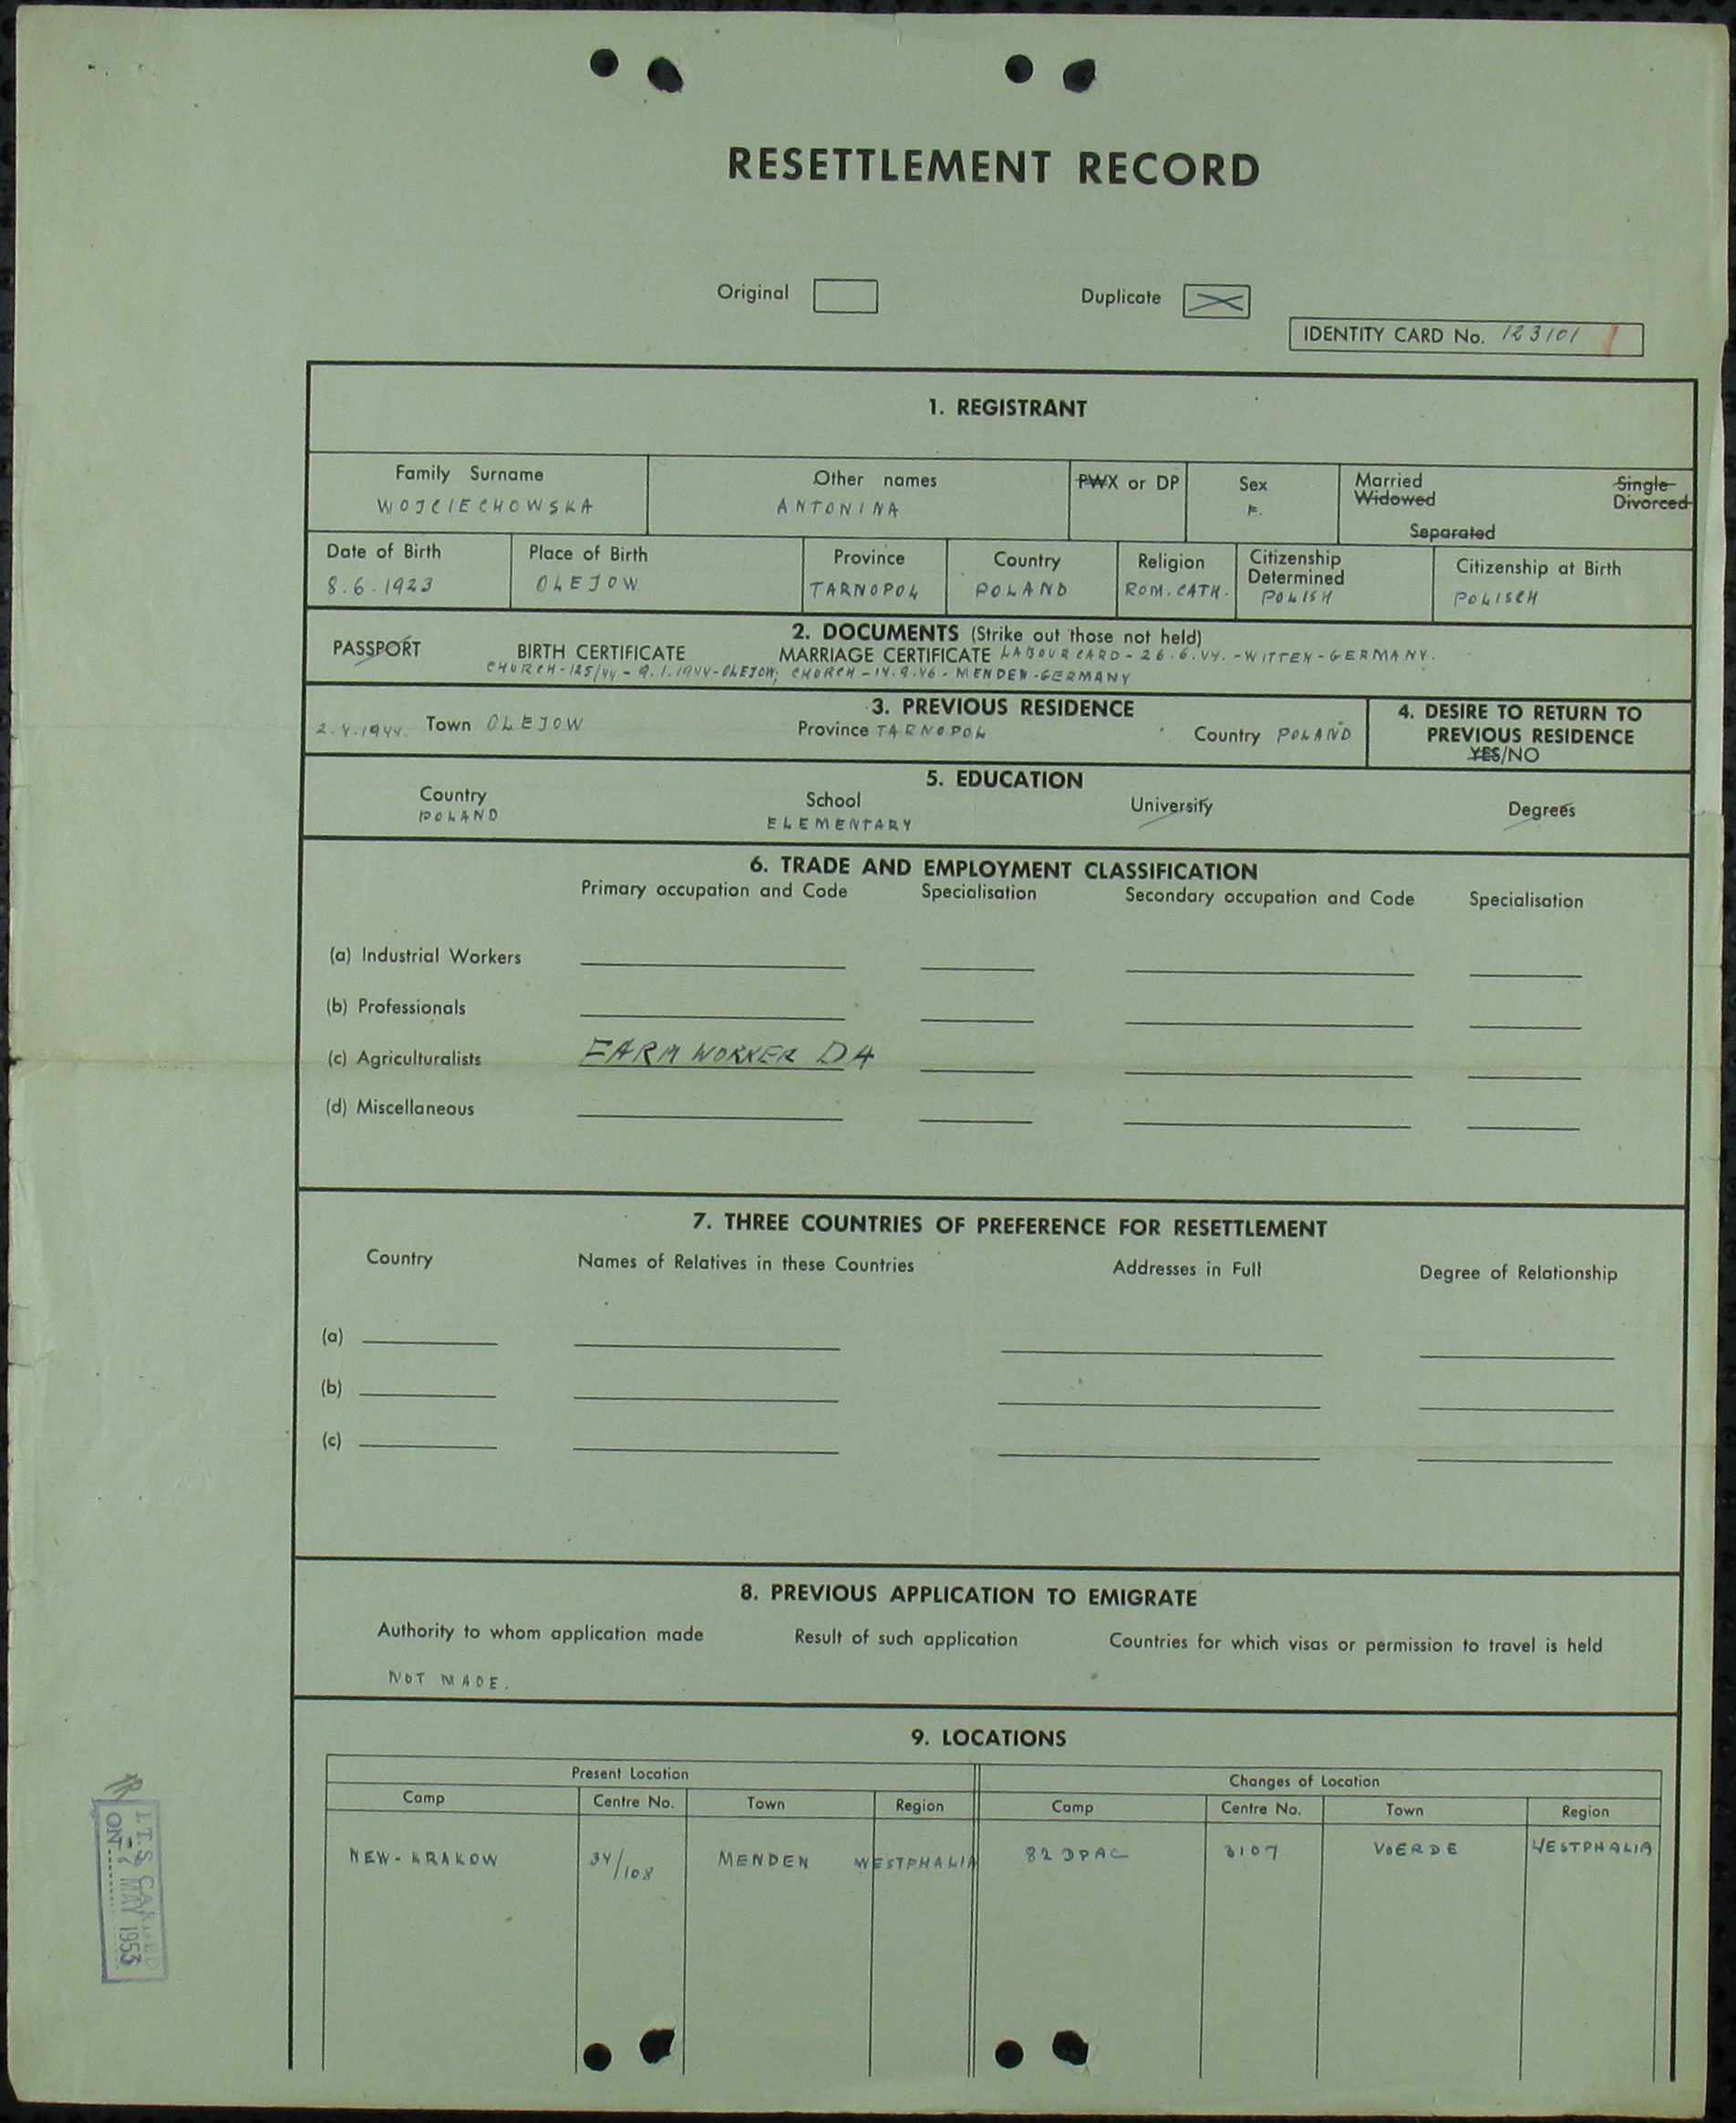 RESETTLEMENT RECORD
Original Duplicate
IDENTITY CARD No. 123101
1. REGISTRANT
Family Surname Other names PWX or DP Sex Married Single
WOJCIECHOWSKA ANTONINA F. Widowed Divorced
Separated
Date of Birth Place of Birth Province Country Religion Citizenship Determined Citizenship at Birth
8.6.1923 OLEJOW TARNOPOL POLAND ROM. CATH. POLISH POLISCH
2. DOCUMENTS (Strike out those not held)
PASSPORT BIRTH CERTIFICATE MARRIAGE CERTIFICATE LABOUR CARD - 26.6.44. - WITTEN - GERMANY.
CHURCH - 125/44 - 9.1.1944 - OLEJOW; CHURCH - 14.9.46 - MENDEN - GERMANY
3. PREVIOUS RESIDENCE
2.4.1944. Town OLEJOW Province TARNOPOL Country POLAND
4. DESIRE TO RETURN TO
PREVIOUS RESIDENCE
YES/NO
5. EDUCATION
Country School University Degrees
POLAND ELEMENTARY
6. TRADE AND EMPLOYMENT CLASSIFICATION
Primary occupation and Code Specialisation Secondary occupation and Code Specialisation
(a) Industrial Workers
(b) Professionals
(c) Agriculturalists FARM WORKER D4
(d) Miscellaneous
7. THREE COUNTRIES OF PREFERENCE FOR RESETTLEMENT
Country Names of Relatives in these Countries Addresses in Full Degree of Relationship
(a)
(b)
(c)
8. PREVIOUS APPLICATION TO EMIGRATE
Authority to whom application made Result of such application Countries for which visas or permission to travel is held
NOT MADE.
9. LOCATIONS
Present Location Changes of Location
Camp Centre No. Town Region Camp Centre No. Town Region
NEW-KRAKOW 34/108 MENDEN WESTPHALIA 82 DPAC 3107 VOERDE WESTPHALIA
I.T.S.
ON MAY 1953